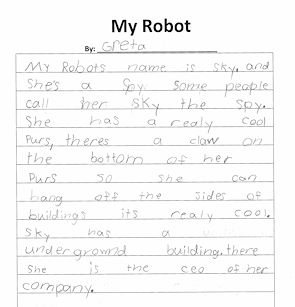 My Robot
By: Greta
My Robots name is sky, and
She's a spy. Some people
call her sky the spy.
She has a realy cool
Purs, theres a claw on
the bottom of her
Purs so she can
hang off the sides of
buildings its realy cool.
sky has a
undergrownd building. there
She is the ceo of her
company.